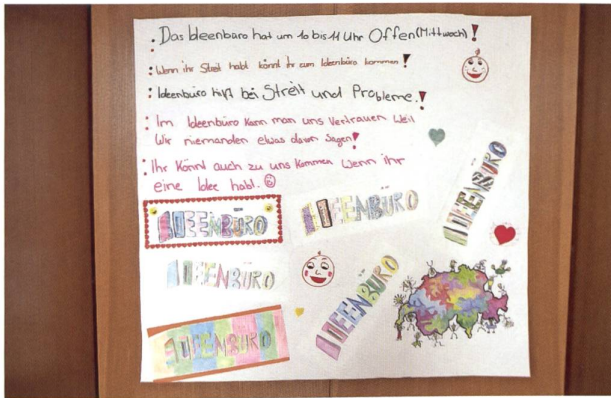 : Das Ideenbüro hat um 10 bis 11 Uhr Offen (Mittwoch)!
: Wenn ihr Streit habt könnt ihr zum Ideenbüro kommen!
: Ideenbüro hilft bei Streit und Probleme.!
: Im Ideenbüro kann man uns vertrauen weil
Wir niemanden etwas davon sagen!
: Ihr könnt auch zu uns kommen wenn ihr
eine Idee habt.
IDEENBÜRO
IDEENBÜRO
IDEENBÜRO
IDEENBÜRO
IDEENBÜRO
IDEENBÜRO